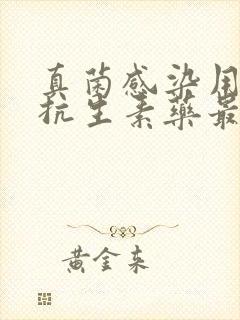 真菌感染用
抗生素药最
黄金来